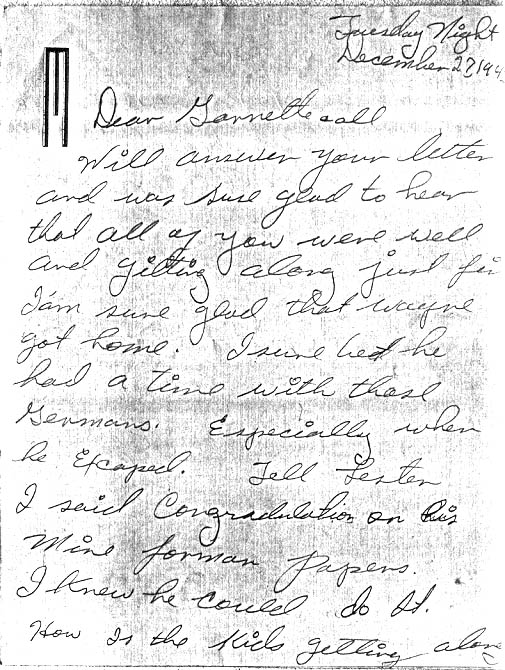 Tuesday Night
December 27, 194
Dear Garnette & all
Will answer your letter
and was sure glad to hear
that all of you were well
and gitting along just fin
I'am sure glad that wayne
got home. I sure bet he
had a time with those
Germans. Especially when
he Excaped. Tell Lester
I said Congradulation on his
Mine forman Papers.
I knew he could do it.
How Is the Kids getting along